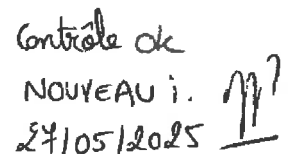 Contrôle ok
NOUVEAU i.
27/05/2025